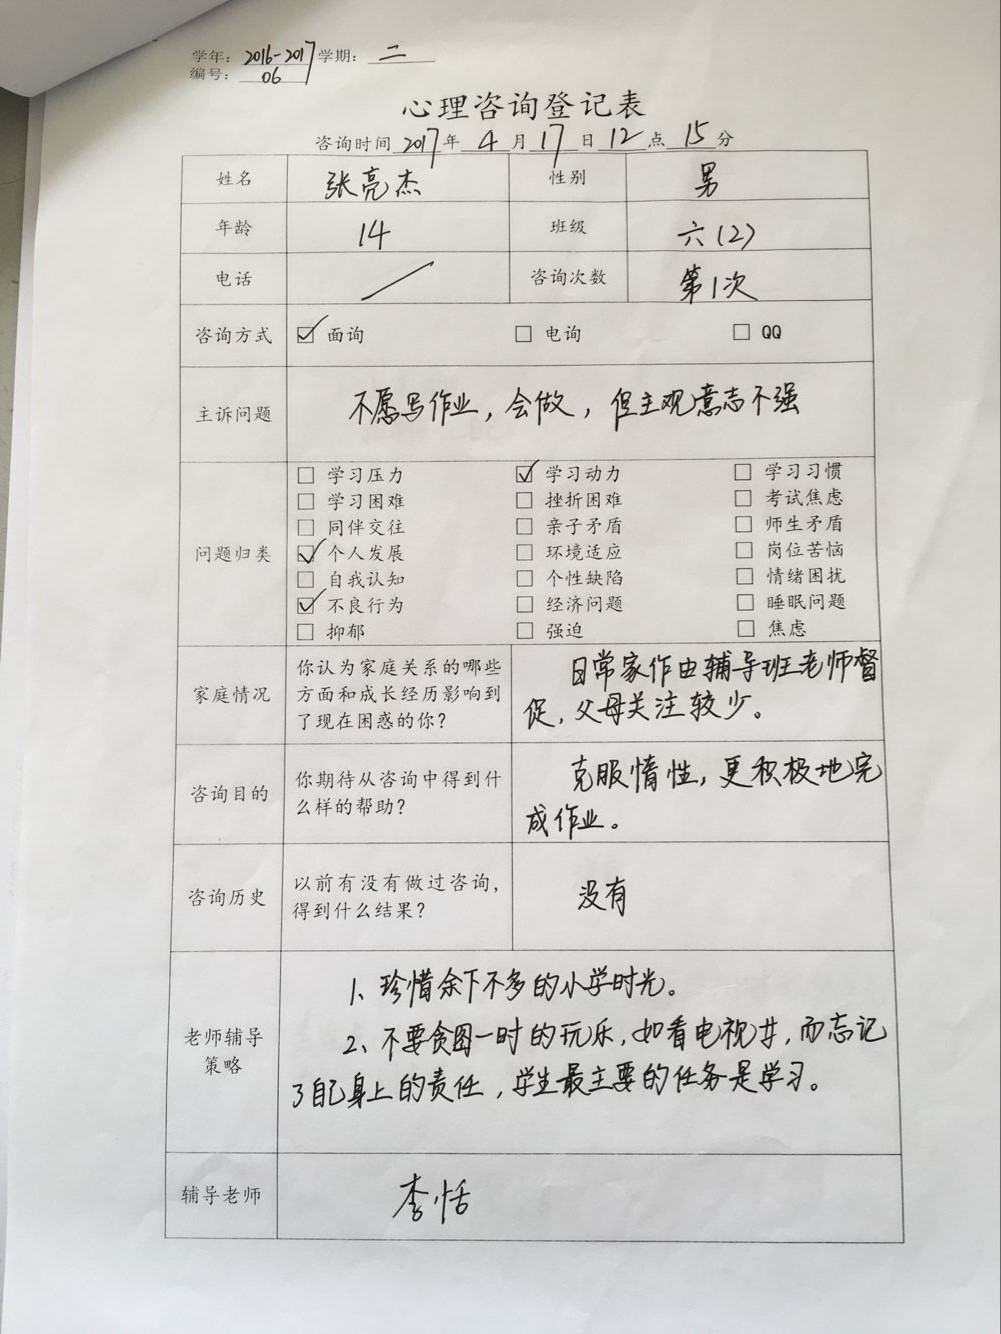 学年：2016-2017 学期：二
编号：06
心理咨询登记表
咨询时间 2017 年 4 月 17 日 12 点 15 分
姓名 张亮杰 性别 男
年龄 14 班级 六(2)
电话 / 咨询次数 第1次
咨询方式 ☑ 面询 □ 电询 □ QQ
主诉问题 不愿写作业，会做，但主观意志不强
□ 学习压力 ☑ 学习动力 □ 学习习惯
□ 学习困难 □ 挫折困难 □ 考试焦虑
□ 同伴交往 □ 亲子矛盾 □ 师生矛盾
问题归类 ☑ 个人发展 □ 环境适应 □ 岗位苦恼
□ 自我认知 □ 个性缺陷 □ 情绪困扰
☑ 不良行为 □ 经济问题 □ 睡眠问题
□ 抑郁 □ 强迫 □ 焦虑
家庭情况
你认为家庭关系的哪些
方面和成长经历影响到
了现在困惑的你？
日常家作由辅导班老师督
促，父母关注较少。
咨询目的
你期待从咨询中得到什
么样的帮助？
克服惰性，更积极地完
成作业。
咨询历史
以前有没有做过咨询，
得到什么结果？
没有
老师辅导
策略
1、珍惜余下不多的小学时光。
2、不要贪图一时的玩乐，如看电视等，而忘记
了自己身上的责任，学生最主要的任务是学习。
辅导老师 李恬